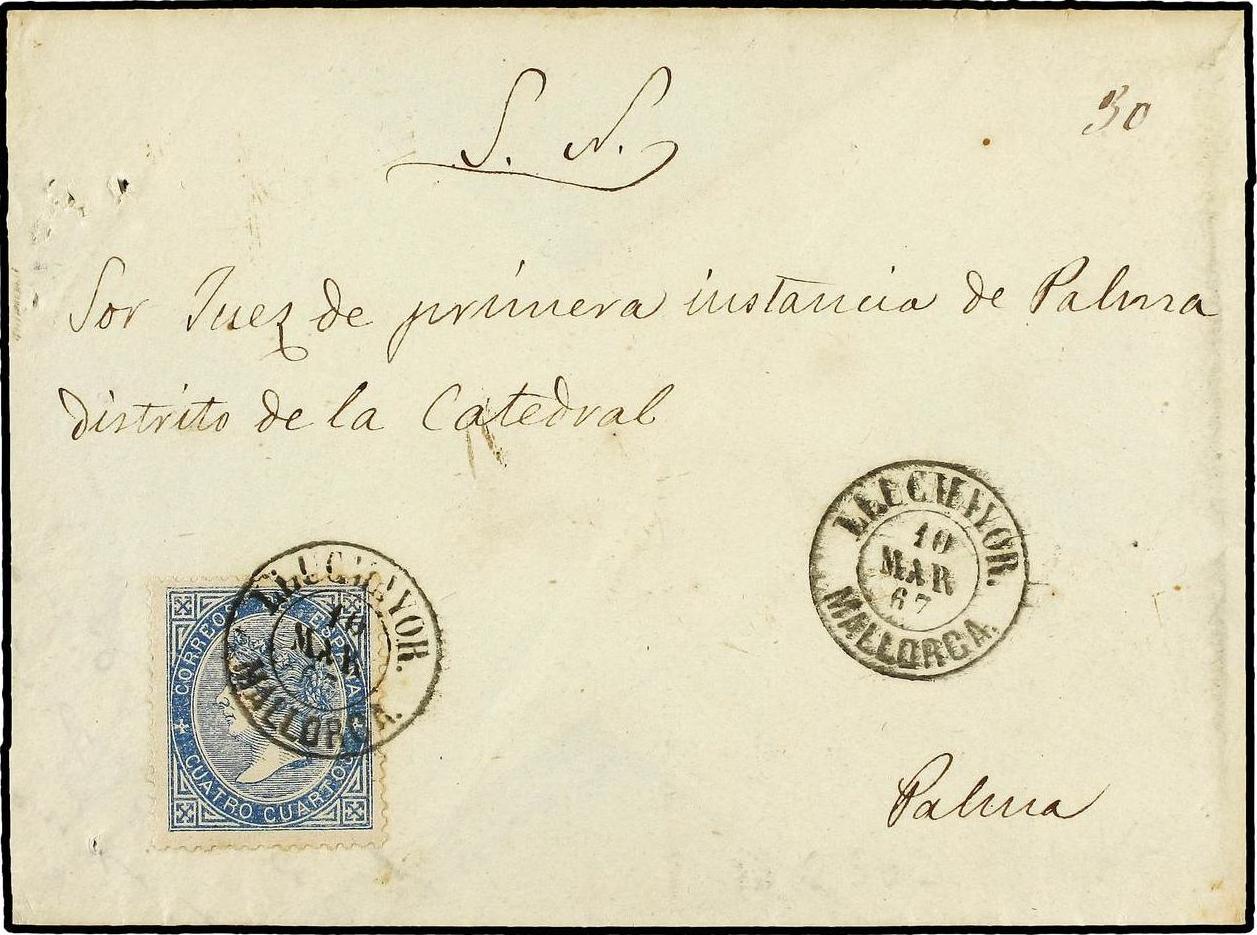 S. N.
30
Sor Juez de primera instancia de Palma
distrito de la Catedral
LLUCHMAYOR.
10
MAR
67
MALLORCA.
LLUCHMAYOR.
10
MAR
67
MALLORCA.
CORREOS ESPAÑA
CUATRO CUARTOS
Palma